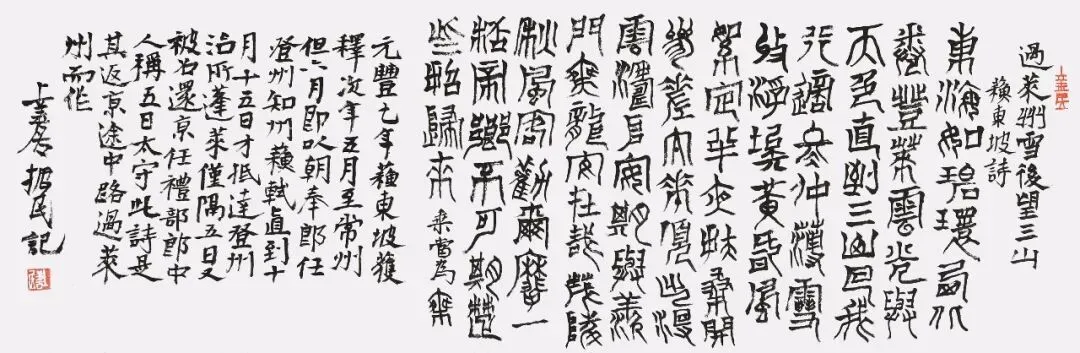 過萊州雪後望三山
蘓東坡詩
東海如碧環西北
卷登萊雲光與
天色直到三山回我
行適冬仲薄雪
收浮埃黃昏風
絮定半夜扶桑開
參差太華頂出沒
雲濤堆安期與羨
門乘龍安在哉茂陵
秋風客勸爾麾一
桮帝鄉不可期楚
些昭歸來 當為
元豐乙年蘓東坡獲
釋次年五月至常州
但六月即以朝奉郎任
登州知州蘓軾直到十
月十五日才抵達登州
治所蓬萊僅隅五日又
被召還京任禮部郎中
人稱五日太守此詩是
其返京途中路過萊
州而作
上善居 振民記